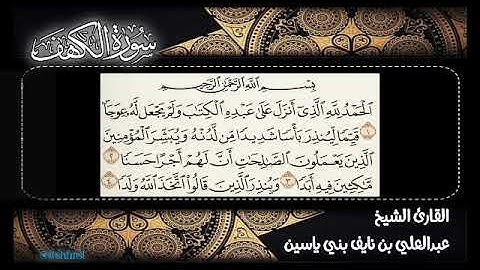 سورة الكهف
بِسْمِ اللَّهِ الرَّحْمَٰنِ الرَّحِيمِ
الْحَمْدُ لِلَّهِ الَّذِي أَنزَلَ عَلَىٰ عَبْدِهِ الْكِتَابَ وَلَمْ يَجْعَل لَّهُ عِوَجًا
١ قَيِّمًا لِّيُنذِرَ بَأْسًا شَدِيدًا مِّن لَّدُنْهُ وَيُبَشِّرَ الْمُؤْمِنِينَ
الَّذِينَ يَعْمَلُونَ الصَّالِحَاتِ أَنَّ لَهُمْ أَجْرًا حَسَنًا ٢
مَّاكِثِينَ فِيهِ أَبَدًا ٣ وَيُنذِرَ الَّذِينَ قَالُوا اتَّخَذَ اللَّهُ وَلَدًا ٤
القارئ الشيخ
عبدالعلي بن نايف بني ياسين